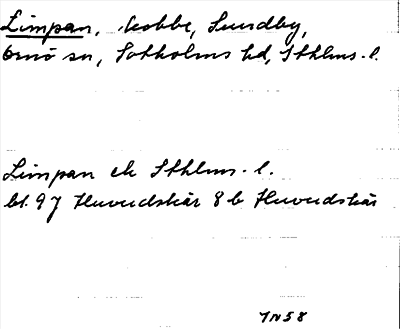 Limpan, kobbe, Sundby,
Ornö sn, Sotholms hd, Sthlms. l.
Limpan ek Sthlms. l.
bl. 97 Huvudskär 8 b Huvudskär
IN58